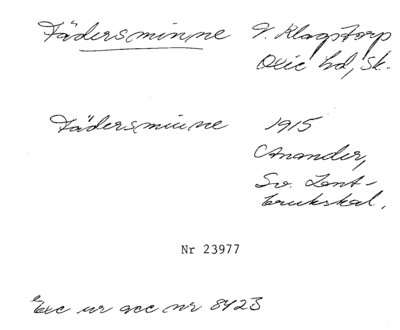 Fädersminne V. Klagstorp
Oxie hd, Sk.
Fädersminne 1915
Anander,
Sv. Lant-
brukskal.
Nr 23977
Exc ur acc nr 8423